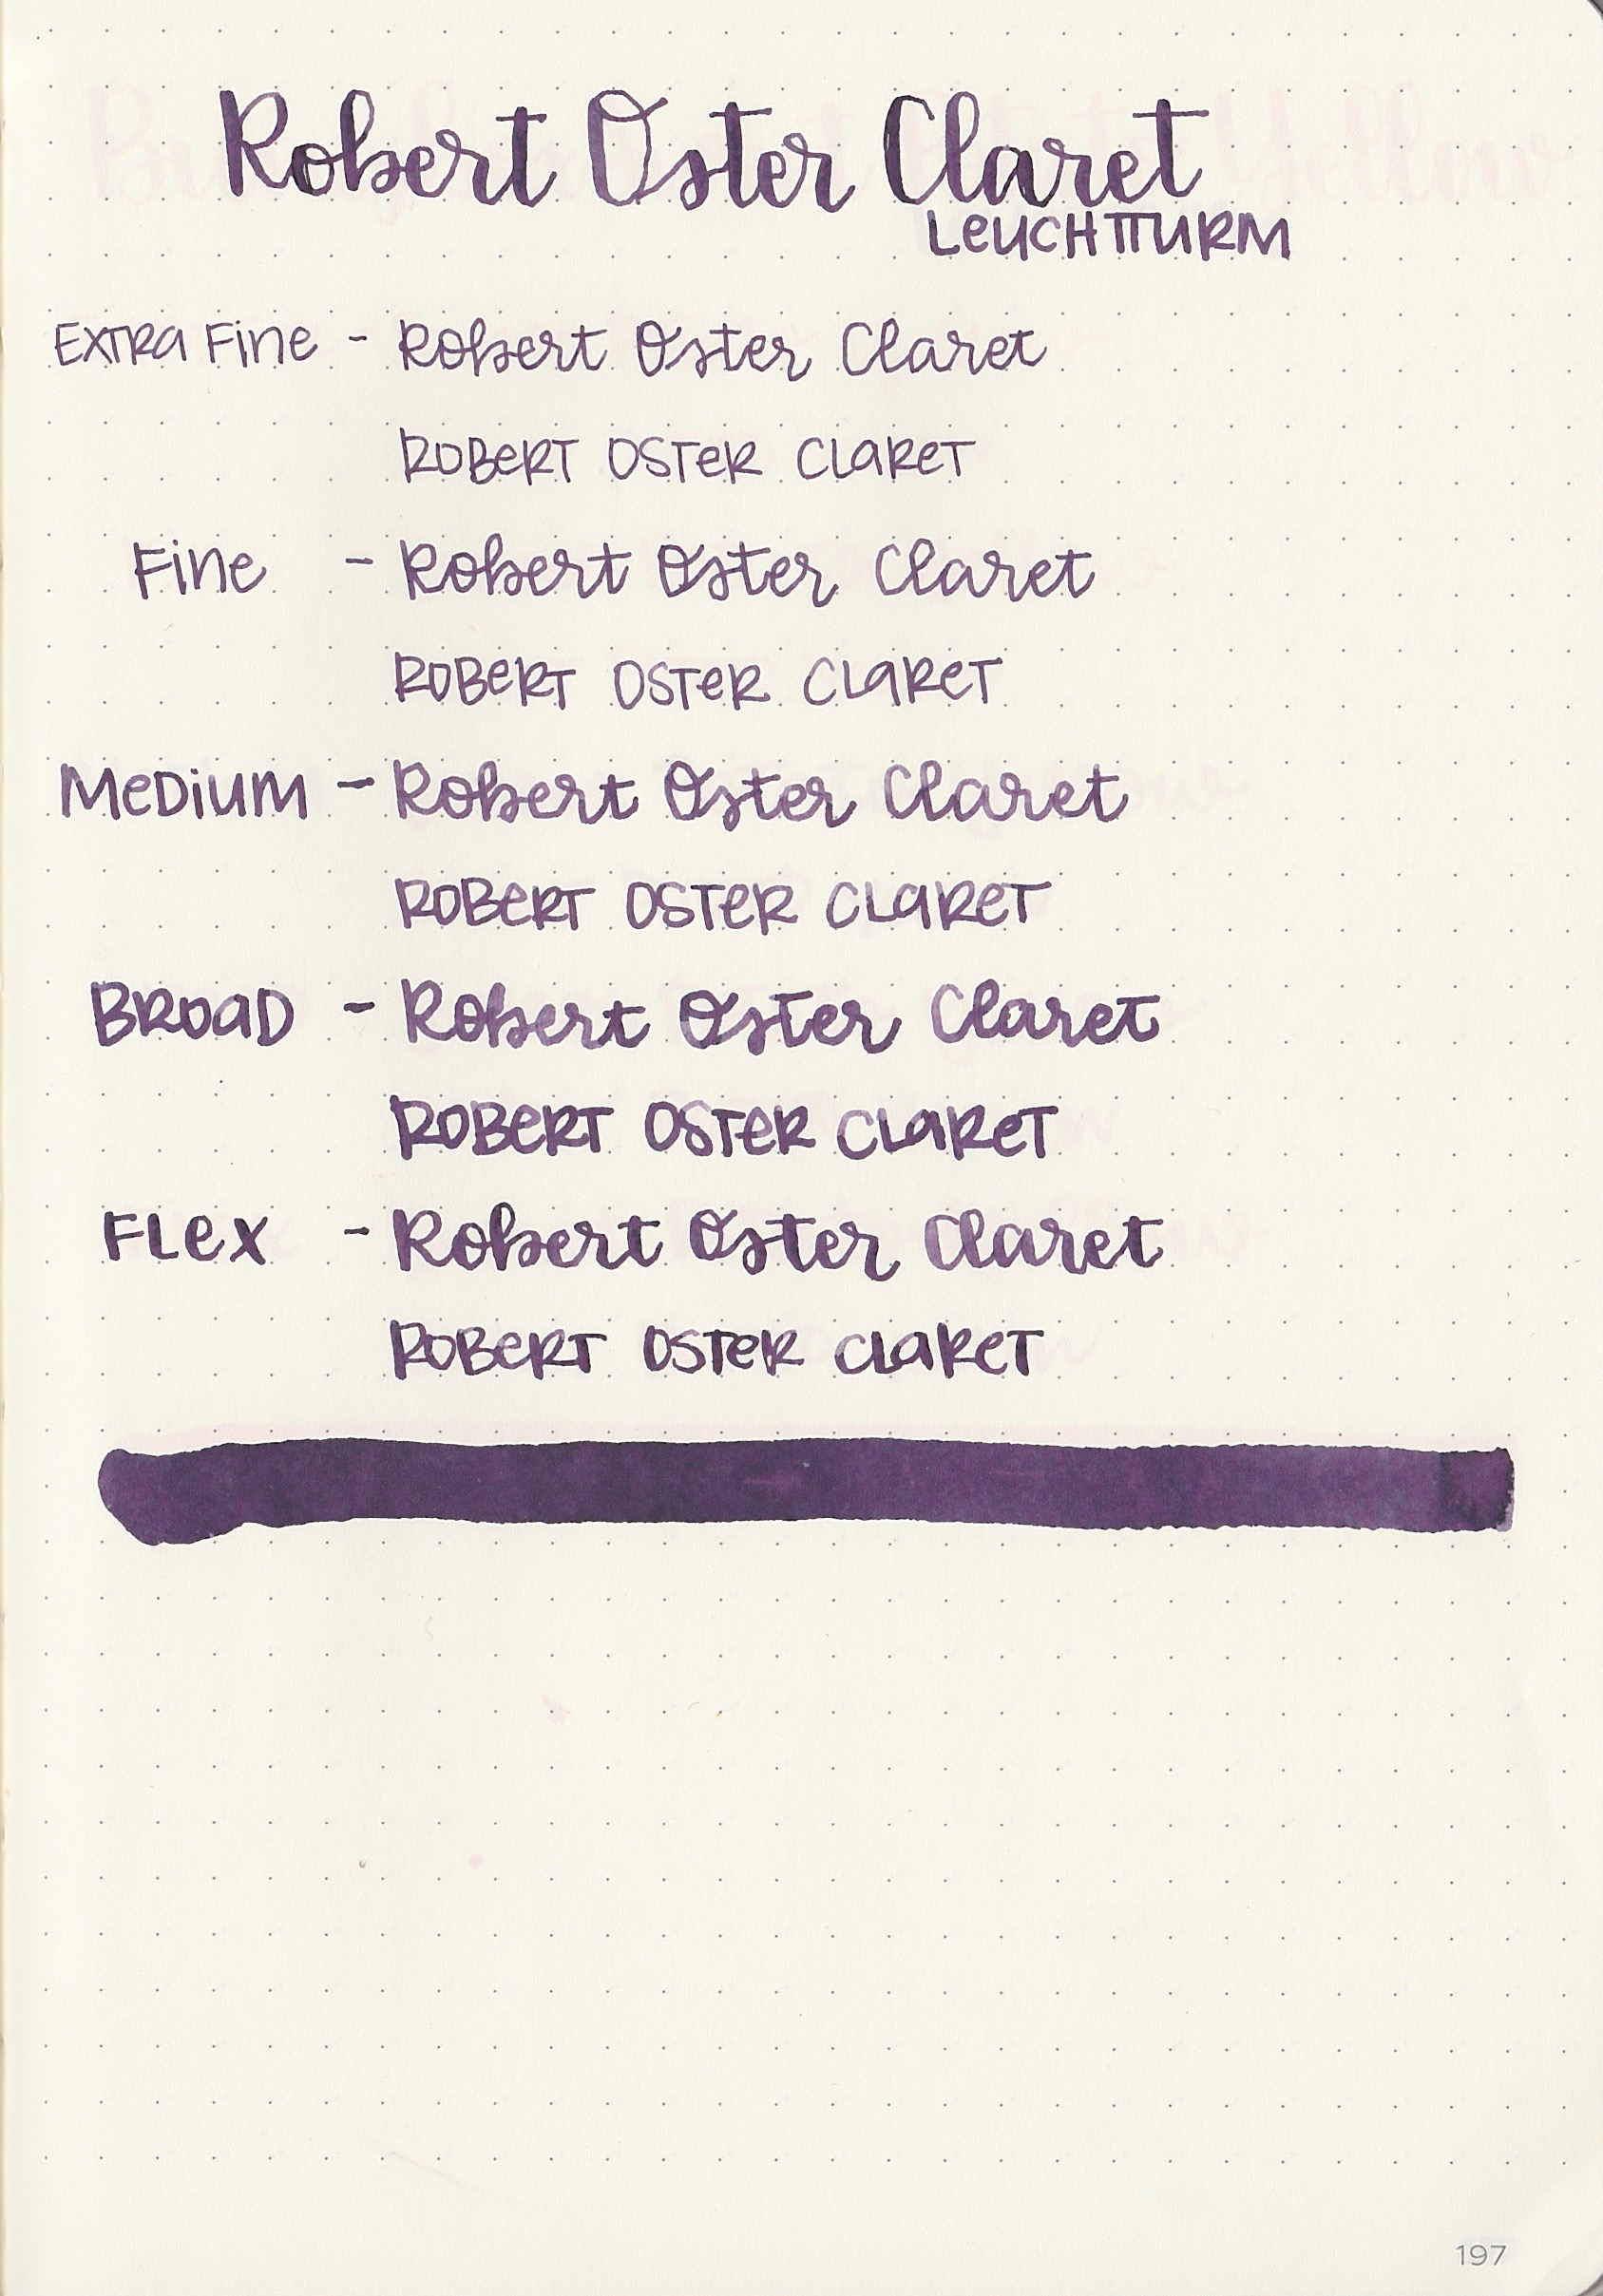 Robert Oster Claret
LEUCHTTURM
EXTRA FINE - Robert Oster Claret
ROBERT OSTER CLARET
FINE - Robert Oster Claret
ROBERT OSTER CLARET
MEDIUM - Robert Oster Claret
ROBERT OSTER CLARET
BROAD - Robert Oster Claret
ROBERT OSTER CLARET
FLEX - Robert Oster Claret
ROBERT OSTER CLARET
197